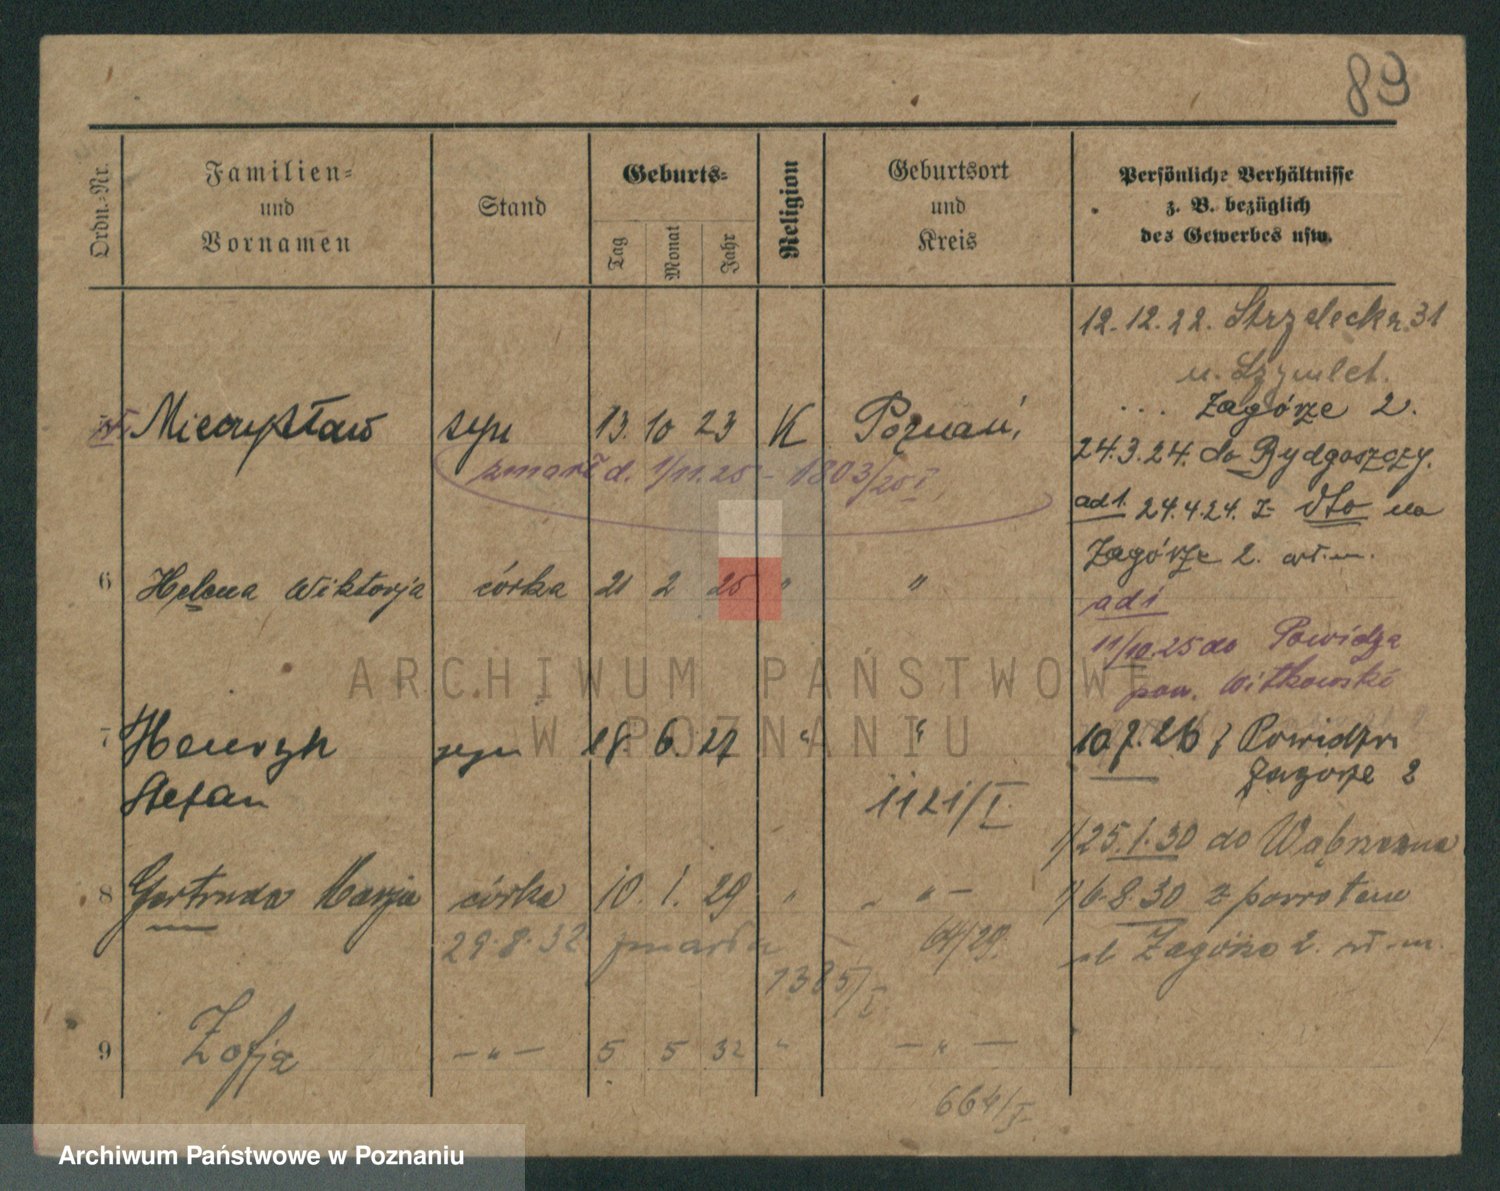 89
Ordn.-Nr.
Familien-
und
Vornamen
Stand
Geburts-
Tag
Monat
Jahr
Religion
Geburtsort
und
Kreis
Persönliche Verhältnisse
z. B. bezüglich
des Gewerbes usw.
12.12.22. Strzeleck. 31
u.
Zagórze 2.
5 Mieczysław syn 13. 10 23 K Poznań,
24.3.24. do Bydgoszczy.
zmarł d. 1/11.25 - 1803/25 I
ad 1. 24.4.24. z dto na
Zagórze 2.
6 Helena Wiktorja córka 21 2 25 " "
ad 1
11/10.25 do Powidza
pow. Witkowski
7 Henryk syn 18 6 27 " "
10.7.26 z Powidza
Stefan
Zagórze 2
1121/I.
1/25.1.30 do Wąbrzezna
8 Gertruda Marja córka 10. 1. 29 " " " —
1/6.8.30 z powrotem
29.8.32 zmarła
64/29.
ul Zagórze 2.
1385/I
9 Zofja — " — 5 5 32 " — " —
664/I
ARCHIWUM PAŃSTWOWE
W POZNANIU
Archiwum Państwowe w Poznaniu